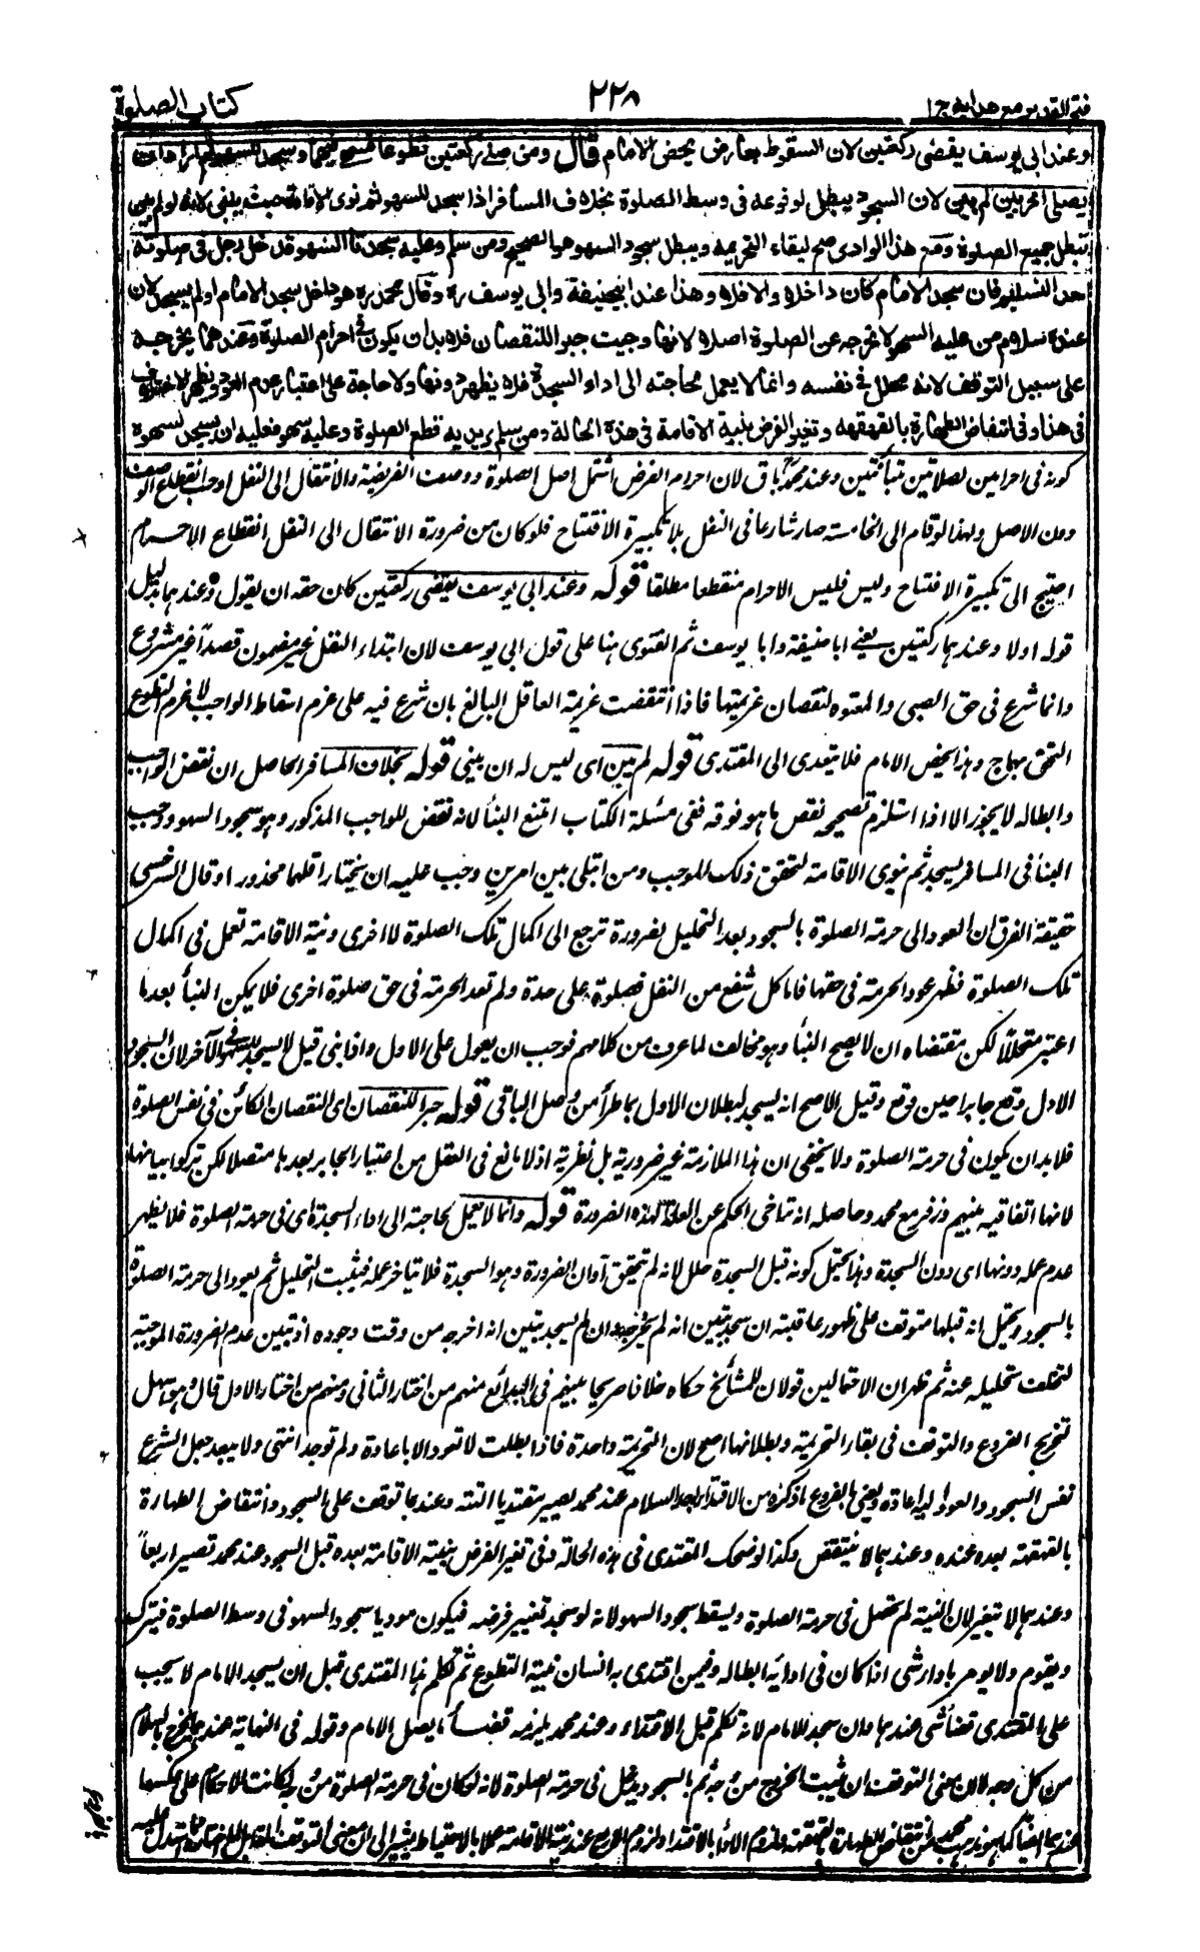 فتح القدير مع هدايه ج ١
٢٢٨
كتاب الصلوة
وعند ابى يوسف يقضى ركعتين لان السقوط بعارض يخص الامام قال ومن صلى ركعتين تطوعا فسهى فيهما وسجد للسهو ثم اراد ان
يصلى اخريين لم يبن لان السجود يبطل لوقوعه فى وسط الصلوة بخلاف المسافر اذا سجد للسهو ثم نوى الاقامة حيث يبنى لانه لو لم يبن
تبطل جميع الصلوة ومع هذا لو ادى صح لبقاء التحريمه ويبطل سجود السهو هو الصحيح ومن سلم وعليه سجدتا السهو فدخل رجل فى صلوته
بعد التسليم فان سجد الامام كان داخلا والا فلا وهذا عند ابيحنيفة وابى يوسف ره وقال محمد ره هو داخل سجد الامام او لم يسجد لان
عنده سلام من عليه السهو لا يخرجه عن الصلوة اصلا لانها وجبت جبرا للنقصان فلا بد ان يكون فى احرام الصلوة وعندهما يخرجه
على سبيل التوقف لانه محلل فى نفسه وانما لا يعمل لحاجته الى اداء السجدة فلا يظهر دونها ولا حاجة على اعتبار عدم العود ويظهر الاختلاف
فى هذا وفى انتقاض الطهارة بالقهقهه وتغير الفرض بنية الاقامة فى هذه الحالة ومن سلم يريد به قطع الصلوة وعليه سهو فعليه ان يسجد لسهوه
كونه فى احرامين لصلاتين متباينتين وعند محمد باق لان احرام الفرض اشتمل اصل الصلوة ووصف الفريضية والانتقال الى النفل اوجب انقطاع الوصف
دون الاصل ولهذا لو قام الى الخامسة صار شارعا فى النفل بلا تكبيرة الافتتاح فلو كان من ضرورة الانتقال الى النفل انقطاع الاحرام
احتيج الى تكبيرة الافتتاح وليس فليس الاحرام منقطعا مطلقا قوله وعند ابى يوسف يقضى ركعتين كان حقه ان يقول وعندهما بدليل
قوله اولا وعندهما ركعتين يعنے ابا حنيفة وابا يوسف ثم الفتوى هنا على قول ابى يوسف لان ابتداء النفل غير مضمون قصدا غير مشروع
وانما شرع فى حق الصبى والمعتوه لنقصان عزيمتهما فاذا انتقضت عزيمة العاقل البالغ بان شرع فيه على عزم اسقاط الواجب لا عزم التطوع
التحق بهما وهذا يخص الامام فلا يتعدى الى المقتدى قوله لم يبن اى ليس له ان يبنى قوله بخلاف المسافر الحاصل ان نقض الواجب
وابطاله لا يجوز الا اذا استلزم تصحيحه نقض ما هو فوقه ففى مسئلة الكتاب امتنع البناء لانه نقض للواجب المذكور وهو سجود السهو ووجب
البناء فى المسافر يسجد ثم ينوى الاقامة لتحقق ذلك الموجب ومن ابتلى بين امرين وجب عليه ان يختار اقلهما محذورا وقال السرخسى
حقيقة الفرق ان العود الى حرمة الصلوة بالسجود بعد التحليل لضرورة ترجع الى اكمال تلك الصلوة لا اخرى ونية الاقامة تعمل فى اكمال
تلك الصلوة فظهر عود الحرمة فى حقها فاما كل شفع من النفل فصلوة على حدة ولم تعد الحرمة فى حق صلوة اخرى فلا يمكن البناء بعدما
اعتبر متحللا لكن مقتضاه ان لا يصح البناء وهو مخالف لما عرف من كلامهم فوجب ان يعول على الاول واذا بنى قيل لا يسجد للسهو فى الآخر لان السجود
الاول وقع جابرا حين وقع وقيل الاصح انه يسجد لبطلان الاول بما طرأ من وصل الباقى قوله جبرا للنقصان اى النقصان الكائن فى نفس الصلوة
فلا بد ان يكون فى حرمة الصلوة ولا يخفى ان هذا الملازمة غير ضرورية بل نظرية اذ لا مانع فى العقل من اعتبار الجابر بعدها متصلا لكن تركوا بيانها
لانها اتفاقيه بينهم وزفر مع محمد وحاصله انه تراخى الحكم عن العلة لهذه الضرورة قوله وانما لا يعمل لحاجته الى اداء السجدة اى فى حرمة الصلوة فلا يظهر
عدم عمله دونها اى دون السجدة وهذا يحتمل كونه قبل السجدة حلل لانه لم يتحقق آوان الضرورة وهو السجدة فلا يتاخر عمله فيثبت التحليل ثم يعود الى حرمة الصلوة
بالسجود ويحتمل انه قبلها متوقف على ظهور عاقبته ان سجد تبين انه لم يخرجه وان لم يسجد تبين انه اخرجه من وقت وجوده اذ تبين عدم الضرورة الموجبة
لتخلف تحليله عنه ثم ظهر ان الاحتمالين قولان للمشائخ حكاه خلافا صريحا بينهم فى البدائع منهم من اختار الثانى ومنهم من اختار الاول قال وهو اسهل
تخريج الفروع والتوقف فى بقاء التحريمة وبطلانها اصح لان التحريمة واحدة فاذا بطلت لا تعود الا باعادة ولم توجد انتهى ولا يبعد جعل الشرع
نفس السجود والعود اليه اعادة ويعنى بالفروع ما ذكره من الاقتداء به بعد السلام عند محمد يصير مقتديا البتة وعندهما توقف على السجود وانتقاض الطهارة
بالقهقهة بعده عنده وعندهما لا ينتقض وكذا لو ضحك المقتدى فى هذه الحالة وفى تغير الفرض بنية الاقامة بعده قبل السجود عند محمد تصير اربعا
وعندهما لا تتغير لان النية لم تحصل فى حرمة الصلوة ويسقط سجود السهو لانه لو سجد تغيير فرضه فيكون موديا سجود السهو فى وسط الصلوة فيترك
ويقوم ولا يومر باداء شى اذا كان فى ادائه ابطاله وفيمن اقتدى به انسان بنية التطوع ثم تكلم هذا المقتدى قبل ان يسجد الامام لا يجب
على المقتدى قضاء شى عندهما وان سجد الامام لانه تكلم قبل الاقتداء وعند محمد يلزمه قضاء ما يصل الامام وقوله فى النهاية عندهما يخرج بالسلام
من كل وجه لا ان معنى التوقف ان يثبت الخروج من وجه ثم بالسجود يدخل فى حرمة الصلوة لانه لو كان فى حرمة الصلوة من وجه لكانت الاحكام على عكسها
عندهما ايضا كما هو مذهب محمد من انتقاض الطهارة بالقهقهة ولزوم الاداء بالاقتداء ولزوم الاربع عند نية الاقامة عملا بالاحتياط يشير الى ان معنى التوقف